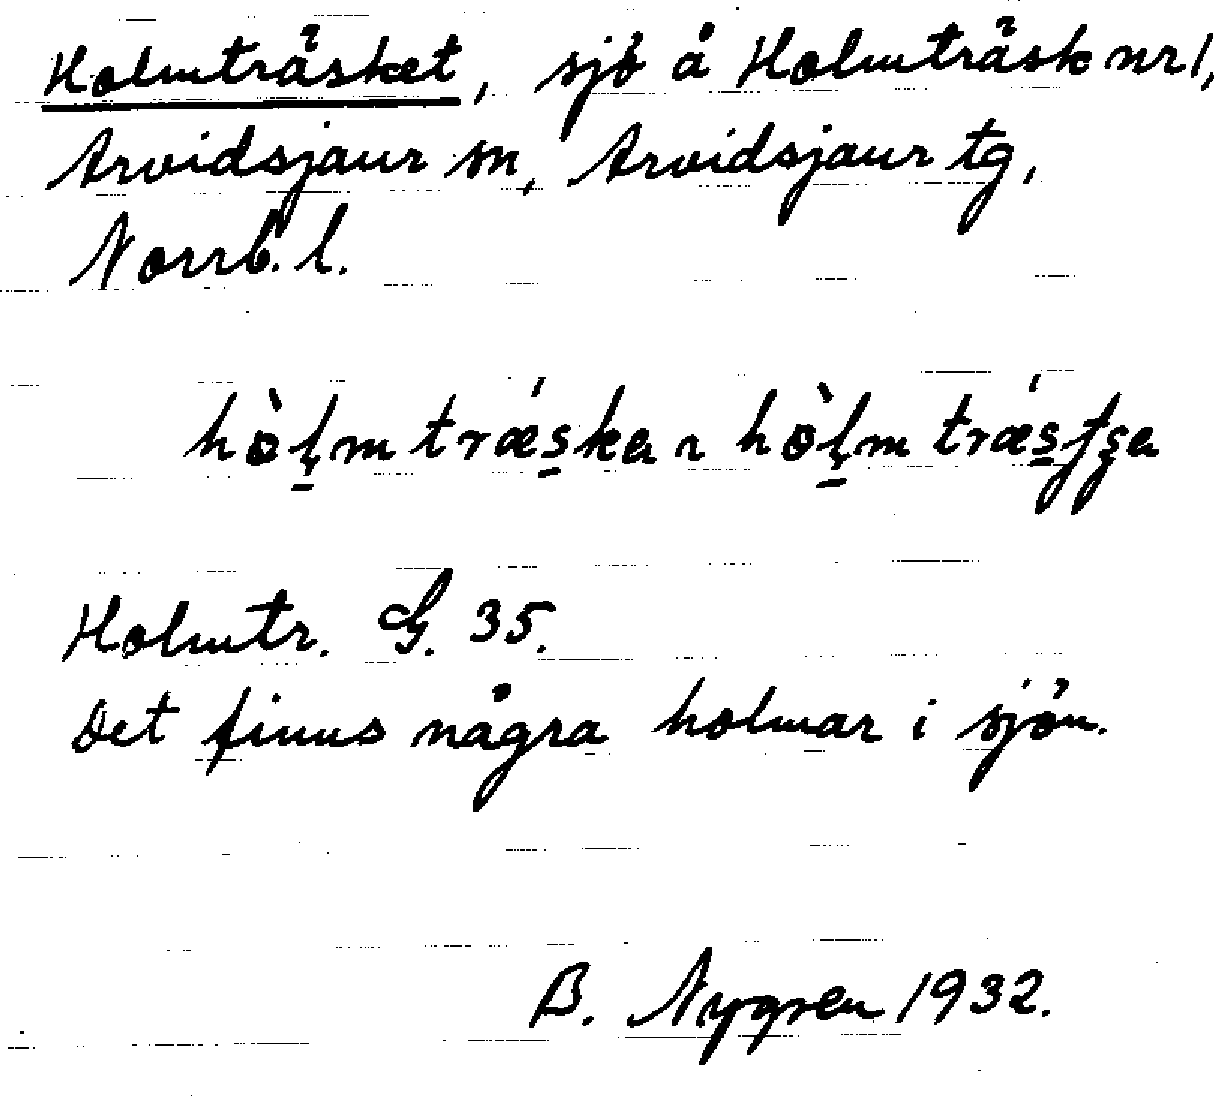 Holmträsket, sjö å Holmträsk nr 1,
Arvidsjaur sn, Arvidsjaur tg,
Norrb. l.
hò̩ḷm træ̀ska ~ hòḷm træ̀sʃʂa
Holmtr. G. 35.
Det finns några holmar i sjön.
B. Nygren 1932.